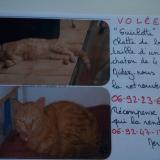 VOLÉE
"Guilotte"
Chatte de la
taille d'un
chaton de 4
Aidez-nous
la retrouver
06-92-23-6
Récompense
qui la rend
06-92-47-1